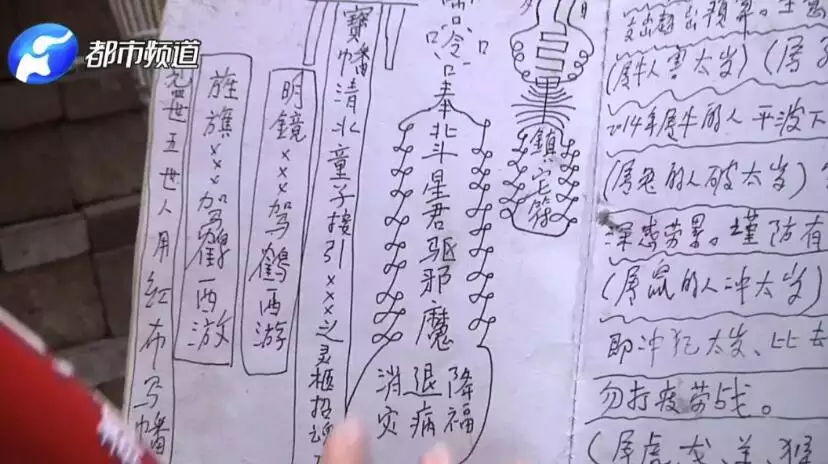 都市频道
鎮宅符
奉北斗星君驱邪魔
降福
退病
消灾
寶幡清北童子接引×××之灵柩招魂
明鏡×××驾鹤西游
旌旗×××驾鶴西游
世五世人用红布写幡
(属牛人害太岁)(属
2014年属牛的人平波下
(属兔的人破太岁)
深感劳累。谨防有
(属鼠的人冲太岁)
即冲犯太岁、比去
勿打疲劳战。
(属虎、龙、羊、猴